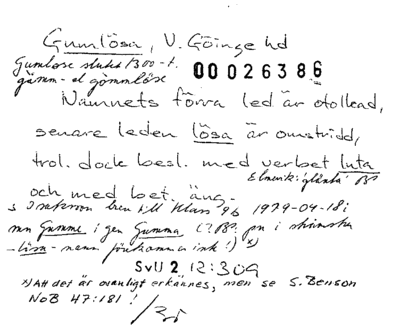 Gumlösa, V. Göinge hd
Gumlose slutet 1300-t.
gumm- el gömmlöse
00026386
Namnets förra led är otolkad,
senare leden lösa är omstridd,
trol. dock besl. med verbet luta
Elmevik: 'glänta'
och med bet. äng.
brev till 1979-04-18:
mn Gumme i gen Gumma i skånska
-lösa- namn förekomma
SvU 2, 12:309
x) Att det är ovanligt erkännes, men se S. Benson
NoB 47:181!